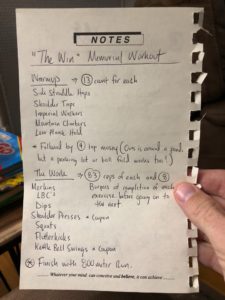 NOTES
"The Win" Memorial Workout
Warmups → (13) count for each
Side Straddle Hops
Shoulder Taps
Imperial Walkers
Mountain Climbers
Low Plank Hold
* Followed by (4) lap mosey (Ours is around a pond,
but a parking lot or ball field works too!)
The Work → (83) reps of each and (8)
Merkins Burpees at completion of each
LBC's exercise before going on to
Dips the next
Shoulder Presses * Coupon
Squats
Flutterkicks
Kettle Bell Swings * Coupon
* Finish with 800 meter Run.
Whatever your mind can conceive and believe, it can achieve